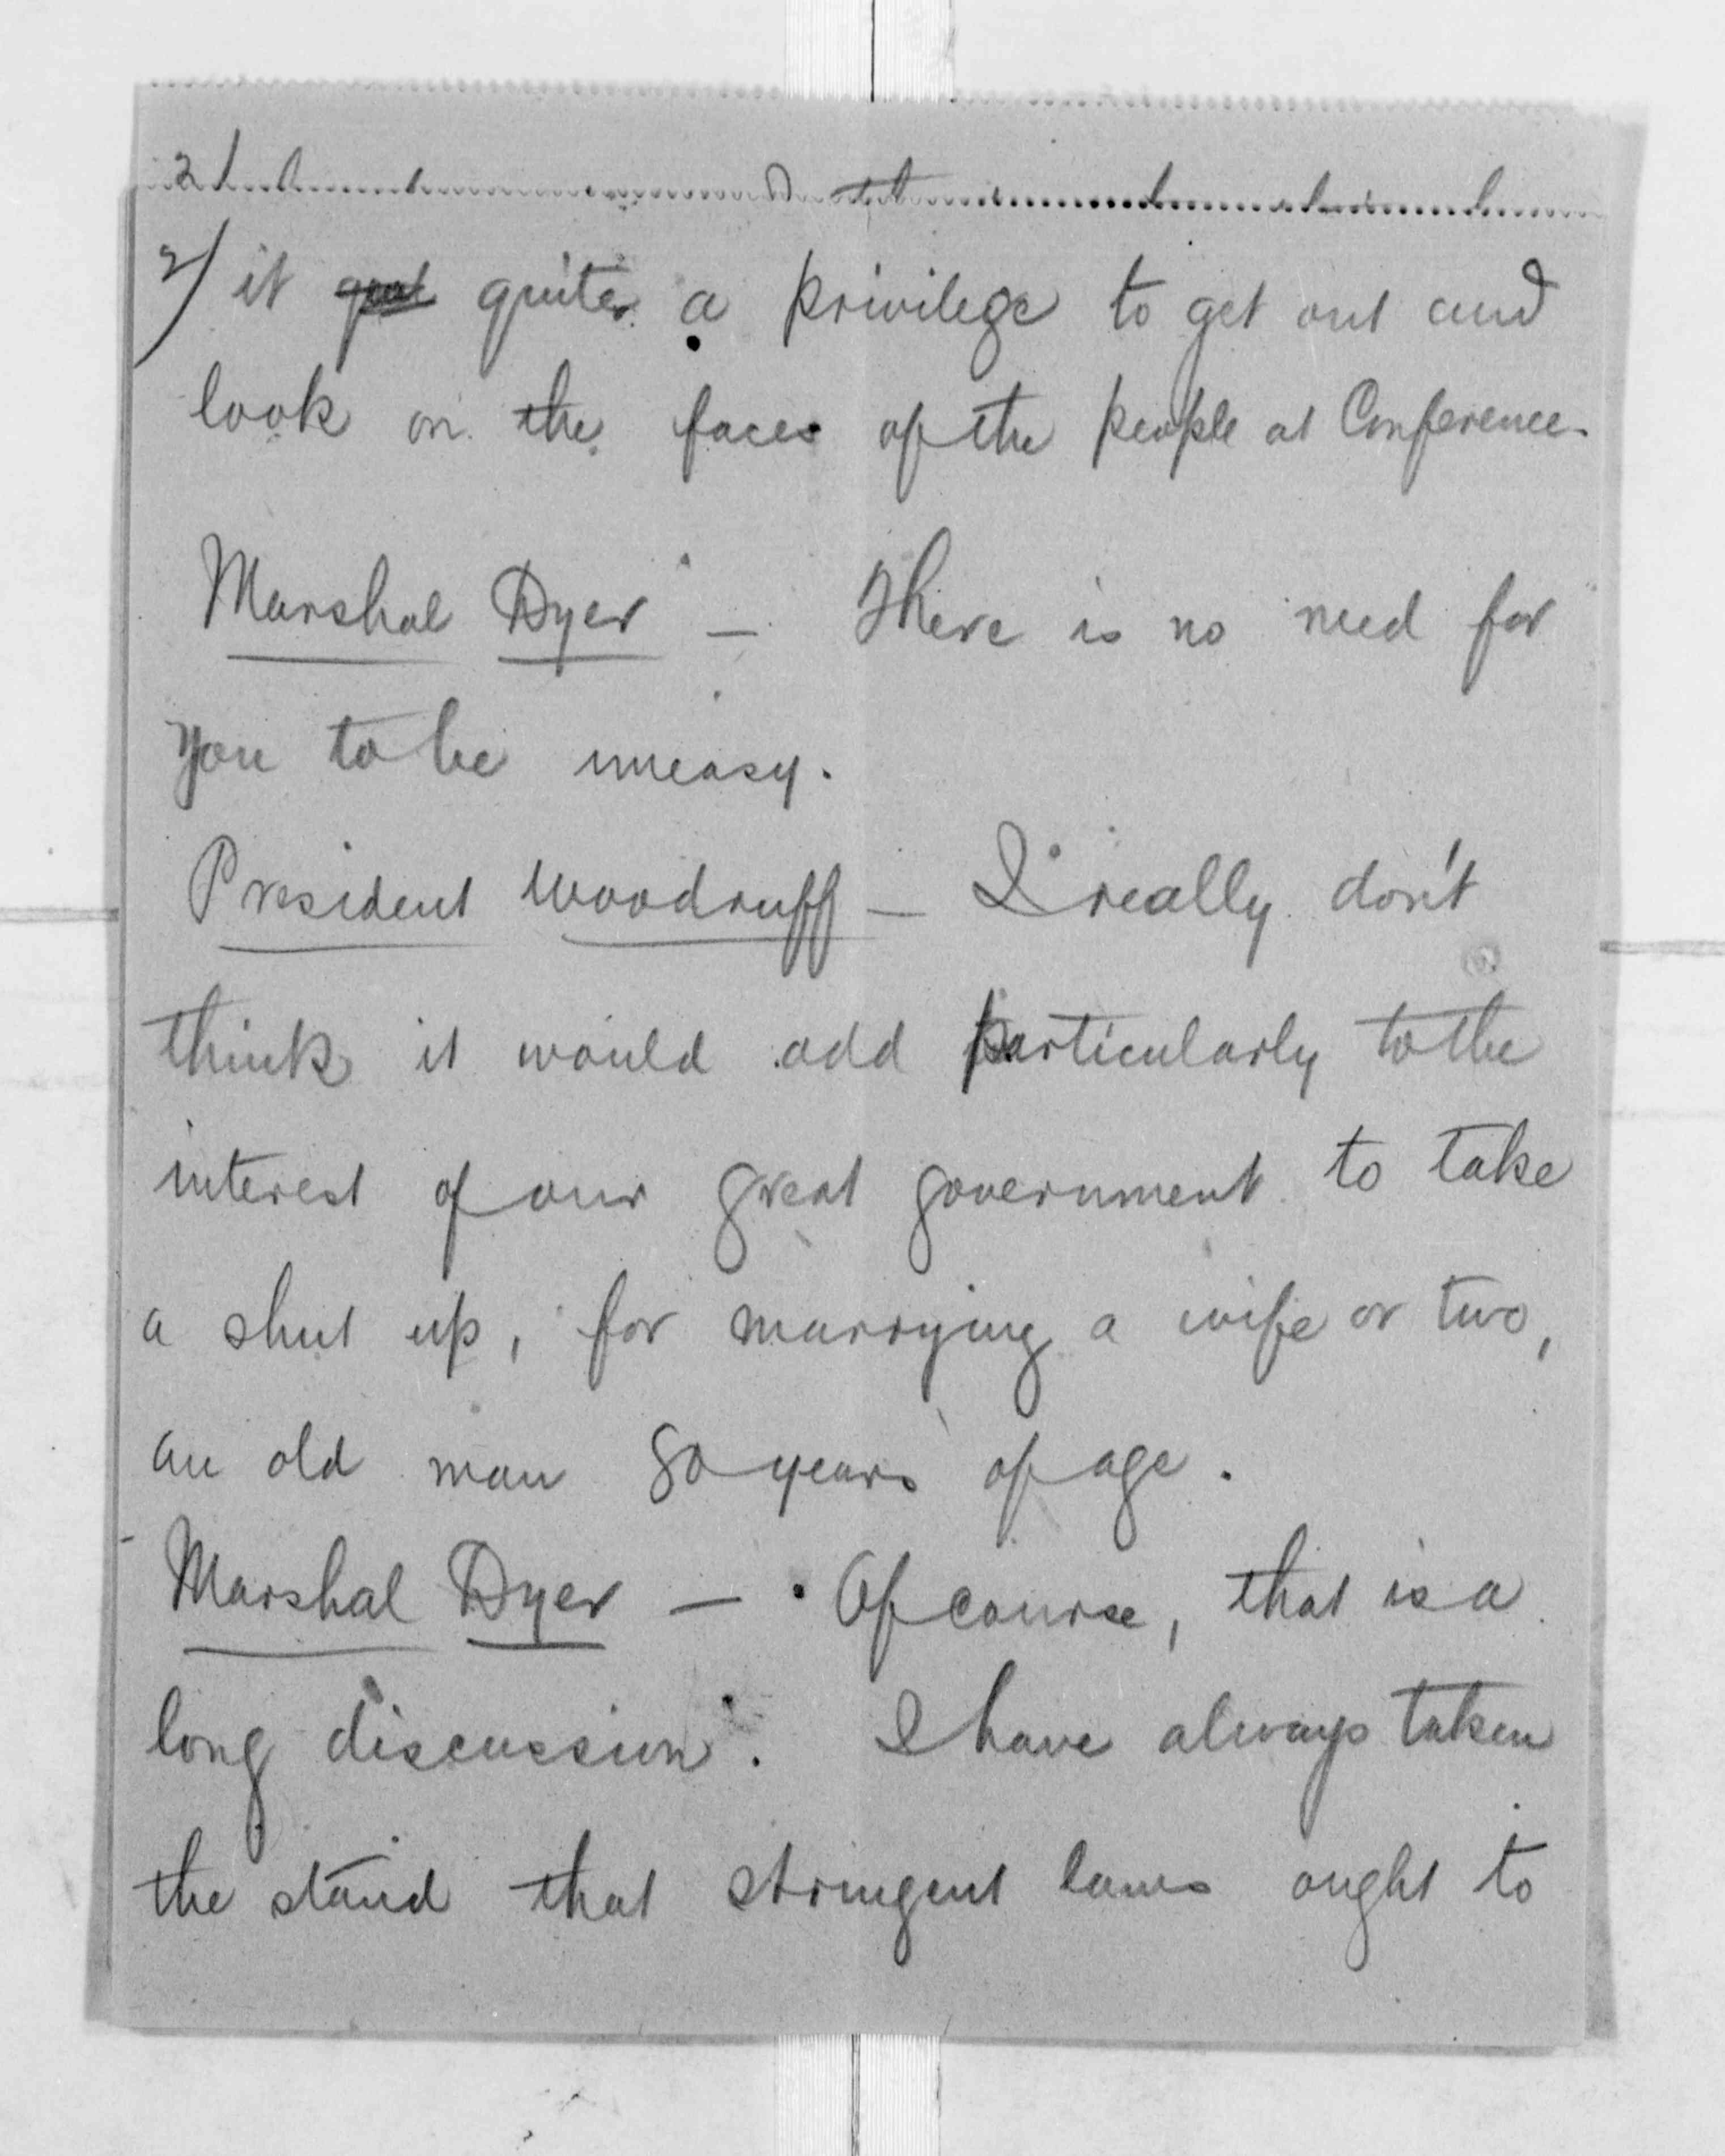 2/
2/ it quite a privilege to get out and
look on the faces of the people at Conference.
Marshal Dyer — There is no need for
you to be uneasy.
President Woodruff — I really don't
think it would add particularly to the
interest of our great government to take
a shut up, for marrying a wife or two,
an old man 80 years of age.
Marshal Dyer — Of course, that is a
long discussion. I have always taken
the stand that stringent laws ought to